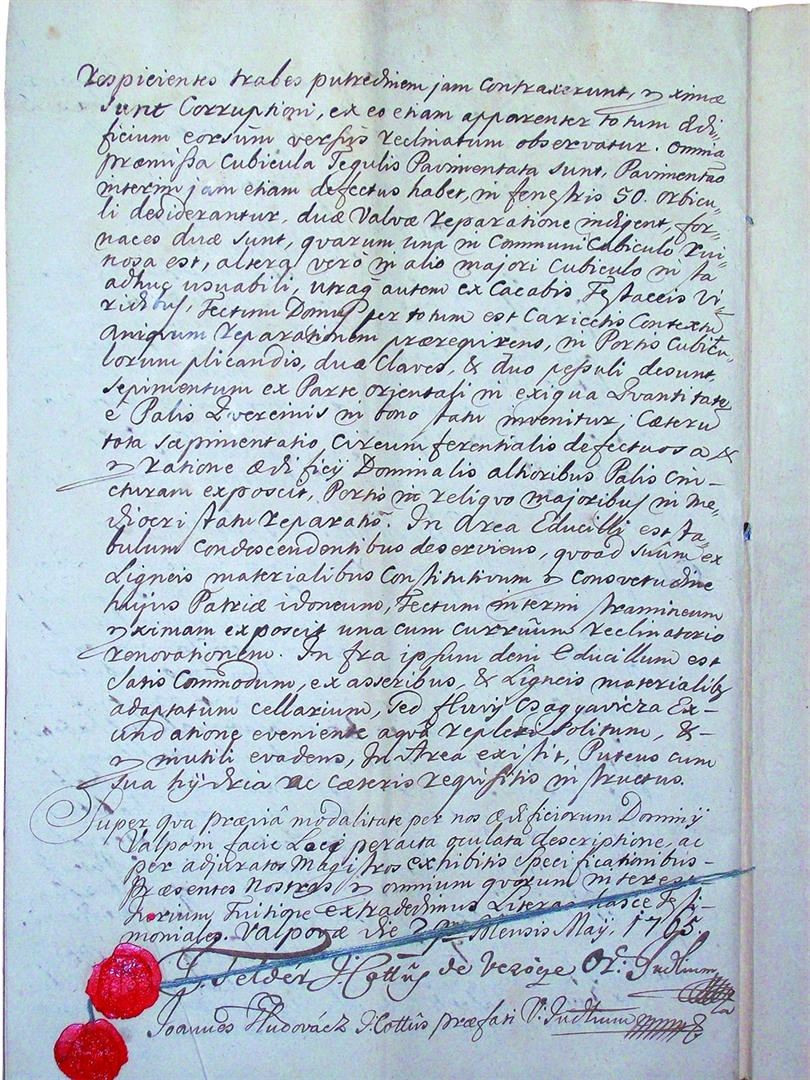 respicientes trabes putredinem jam contraxerunt, & ximæ
sunt Corruptioni, ex eo etiam apparenter totum ædi-
ficium eorsum versus reclinatum observatur. Omnia
præmissa Cubicula Tegulis Pavimentata sunt, Pavimentao
interim jam etiam defectus habet, in fenestris 50. orbicu-
li desiderantur, duæ Valvæ reparatione indigent, for-
naces duæ sunt, quarum una in Communi Cubiculo rui-
nosa est, altera verò in alio majori Cubiculo in sta
adhuc usuabili, utraq autem ex Cacabis Testaceis vi-
ridibus, Tectum Domus per totum est Caricetis Contextu
reparationem prærequirens, in Portis Cubicu-
lorum plicandis, duæ Claves, & duo pessuli desunt,
Sepimentum ex Parte orientali in exigua Quantitate
e Palis Quercinis in bono statu invenitur, Cæteru
tota sæpimentatio Circumferentialis defectuosa &
& ratione ædificij Dominalis altioribus Palis Cin-
cturam exposcit, Portis in reliquo majoribus in me-
diocri statu reparatis. In Area Educilli est sta-
bulum Condescendentibus deserviens, quoad suum ex
Ligneis materialibus Constitutivum & Consvetudine
hujus Patriæ idoneum, Tectum interim stramineum
&ximam exposcit una cum curruum reclinatorio
renovationem. Infra ipsum deni Educillum est
satis Commodum, ex asseribus, & Ligneis materialib9
adaptatum cellarium, sed fluvij Csagyavicza Ex-
undatione eveniente aqua repleri solitum, &-
& inutili evadens, In Area existit, Puteus cum
sua hydria ac cæteris requisitis instructus.
Super qva præviâ modalitate per nos ædificiorum Dominij
Valpon facie Loci peracta oculata descriptione, ac
per adjuratos Magistros exhibitis specificationibus-
Præsentes Nostras, & omnium quorum interest
Jurium, Tuitique extradedimus Literas hasce Testi-
moniales. Valpovæ die Mensis Maij. 1765.
J. Felder J. Cottûs de Verőcze Or. Judlium
Joannes Hudovácz I. Cottûs præfati V. Judlium